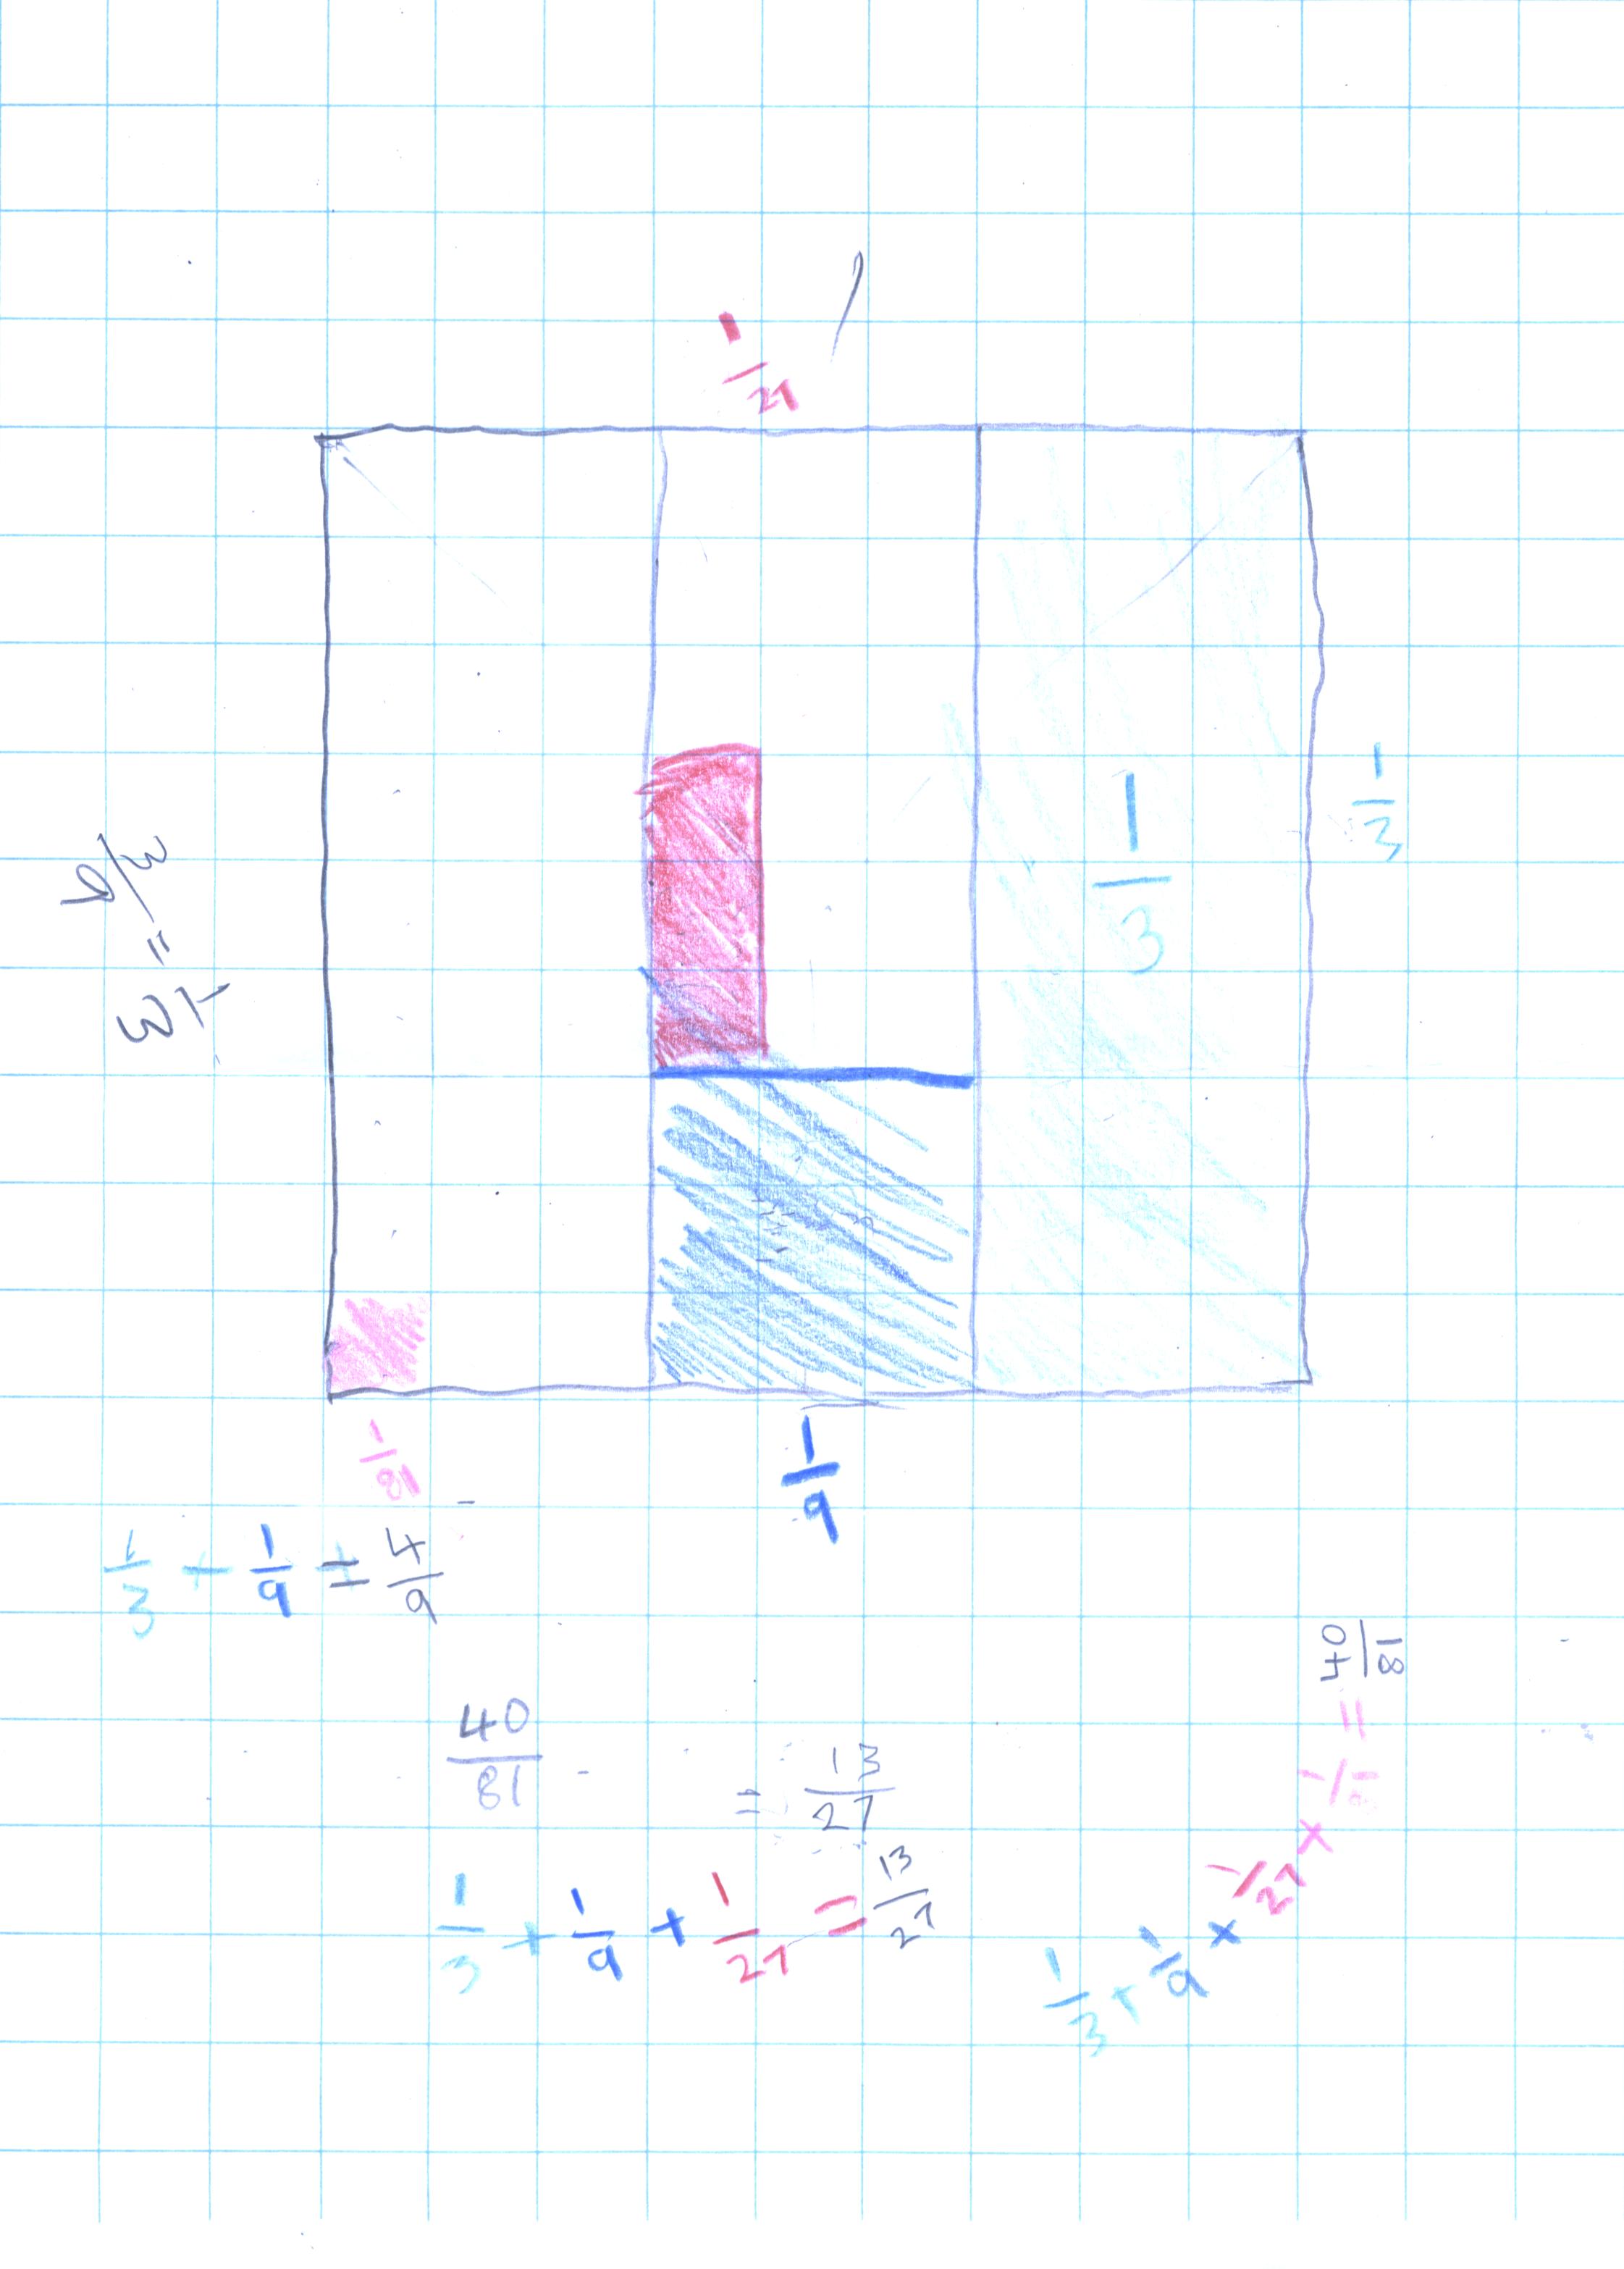 1/27
1/3
1/3
3/9 = 1/3
1/9
1/81
1/3 + 1/9 = 4/9
40/81
= 13/27
1/3 + 1/9 + 1/27 = 13/27
1/3 + 1/9 × 1/27 × 1/81 = 40/81